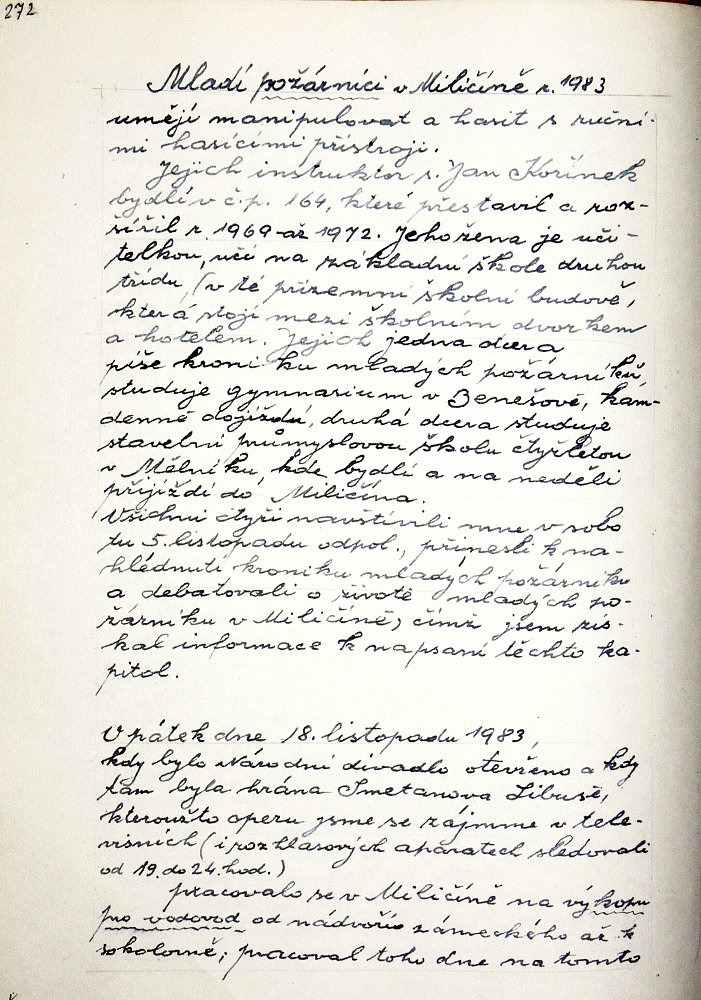 272
Mladí požárníci v Miličíně r. 1983
umějí manipulovat a hasit s ruční-
mi hasícími přístroji.
Jejich instruktor s. Jan Kořínek
bydlí v č.p. 164, které přestavil a roz-
šířil r. 1969 až 1972. Jeho žena je uči-
telkou, učí na základní škole druhou
třídu, (v té přízemní školní budově,
která stojí mezi školním dvorkem
a hotelem. Jejich jedna dcera
píše kroniku mladých požárníků,
studuje gymnasium v Benešově, kam-
denně dojíždí, druhá dcera studuje
stavební průmyslovou školu čtyřletou
v Mělníku, kde bydlí a na neděli
přijíždí do Miličína.
Všichni čtyři navštívili mne v sobo
tu 5. listopadu odpol., přinesli k na-
hlédnutí kroniku mladých požárníku
a debatovali o životě mladých po-
žárníku v Miličíně, čímž jsem zís-
kal informace k napsaní těchto ka-
pitol.
V pátek dne 18. listopadu 1983,
kdy bylo Národní divadlo otevřeno a kdy
tam byla hrána Smetanova Libuše,
kteroužto operu jsme se zájmme v tele-
visních (i rozhlasových aparatech sledovali
od 19. do 24. hod.)
pracovalo se v Miličíně na výkopu
pro vodovod od nádvoří zámeckého až k
sokolovně; pracoval toho dne na tomto